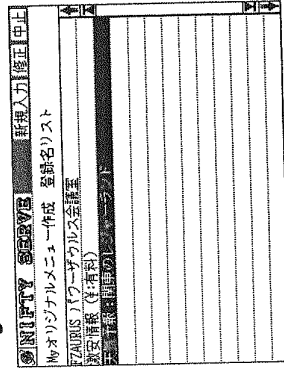 NIFTY SERVE 新規入力 修正 中止
Myオリジナルメニュー作成 登録名リスト
FZAURUS パワーザウルス会議室
激安情報 (¥:有料)